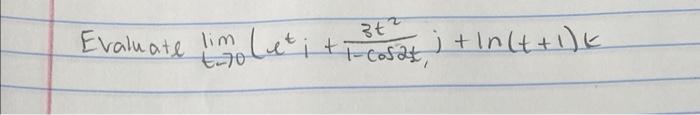 Evaluate lim t→0 (e^t i + 3t²/(1-cos2t) j + ln(t+1)k